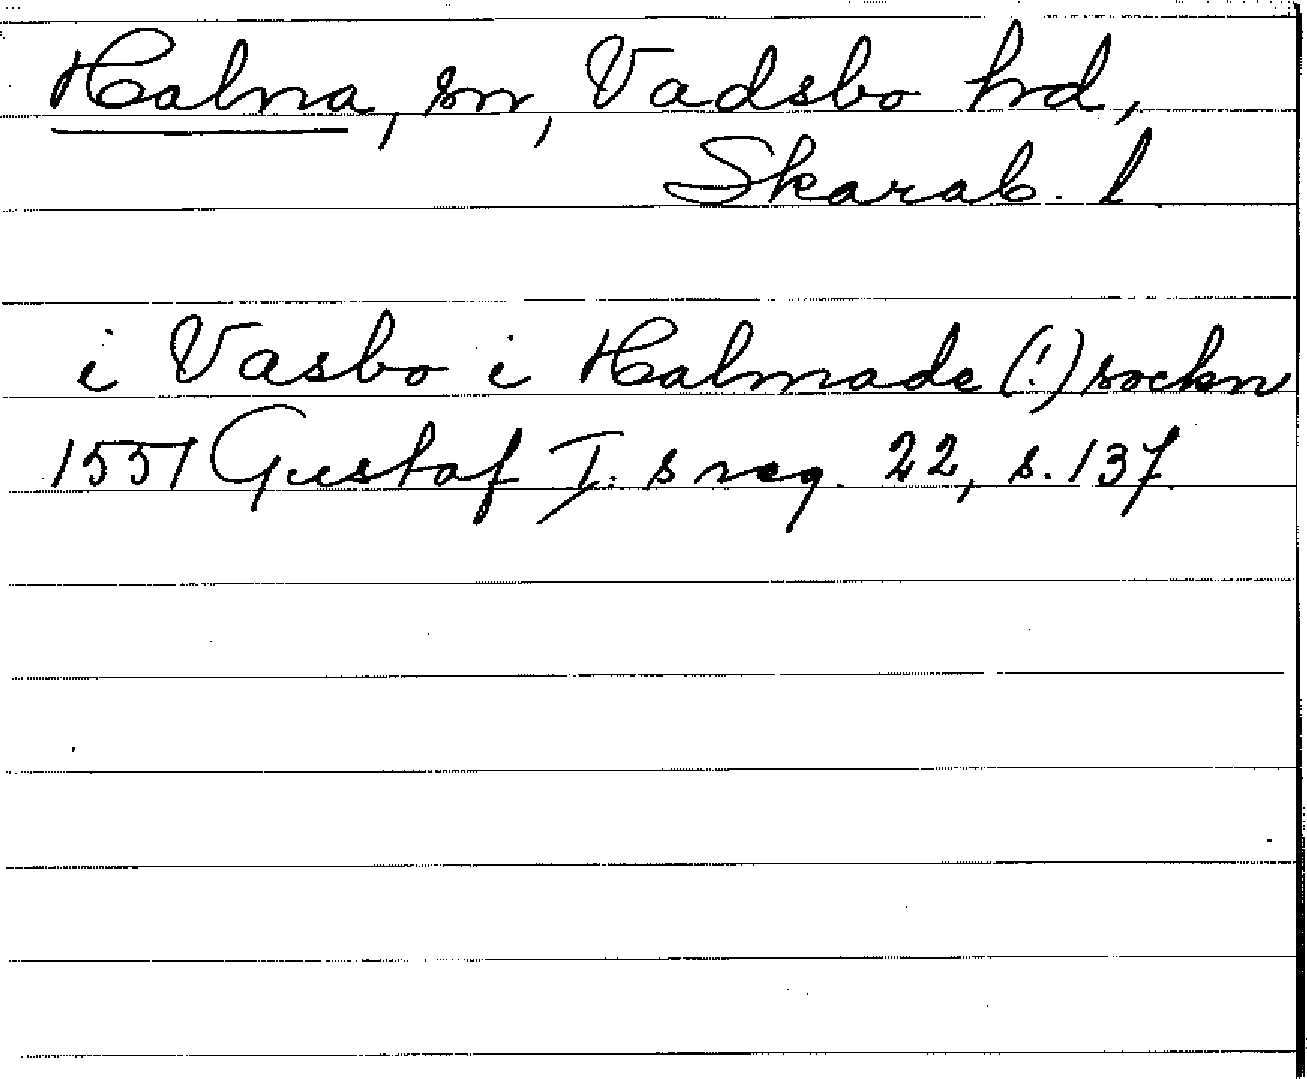 Halna, sn, Vadsbo hd,
Skarab. l.
i Vasbo i Halmade (!) sockn
1551 Gustaf I:s reg. 22, s. 137.